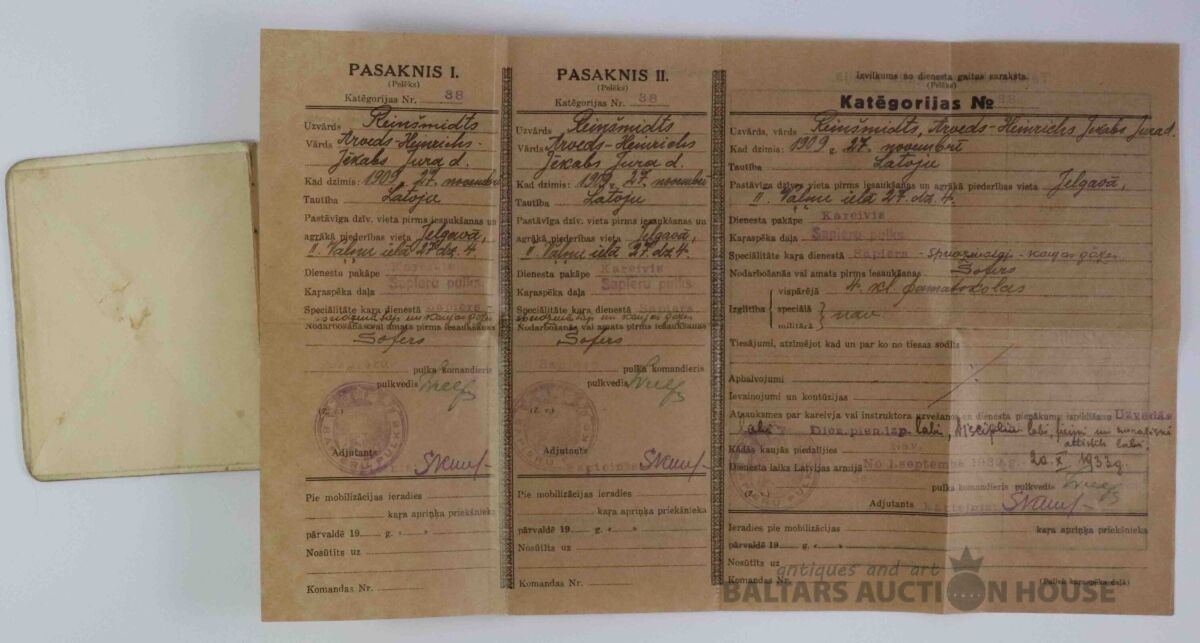 PASAKNIS I.
(Pelēks)
Katēgorijas Nr. 38
Uzvārds Reinšmidts
Vārds Arveds-Heinrichs-
Jēkabs Jura d.
Kad dzimis: 1909 g. 27. novembrī
Tautība Latvju
Pastāvīga dzīv. vieta pirms iesaukšanas un
agrākā piederības vieta Jelgavā,
II. Vaļņu ielā 27. dz. 4.
Dienesta pakāpe Kareivis
Kaŗaspēka daļa Sapieru pulks
Specialitāte kaŗa dienestā
un kaujas gāzes
Nodarbošanās vai amats pirms iesaukšanas
Šofers
pulka komandieris
pulkvedis
(Z. v.)
Adjutants
Pie mobilizācijas ieradies
kaŗa apriņķa priekšnieka
pārvaldē 19 g. „ „
Nosūtīts uz
Komandas Nr.
PASAKNIS II.
(Pelēks)
Katēgorijas Nr. 38
Uzvārds Reinšmidts
Vārds Arveds-Heinrichs
Jēkabs Jura d.
Kad dzimis: 1909 g. 27. novembrī
Tautība Latvju
Pastāvīga dzīv. vieta pirms iesaukšanas un
agrākā piederības vieta Jelgavā,
II. Vaļņu ielā 27. dz. 4.
Dienesta pakāpe Kareivis
Kaŗaspēka daļa Sapieru pulks
Specialitāte kaŗa dienestā
un kaujas gāzes
Nodarbošanās vai amats pirms iesaukšanas
Šofers
pulka komandieris
pulkvedis
(Z. v.)
Adjutants
Pie mobilizācijas ieradies
kaŗa apriņķa priekšnieka
pārvaldē 19 g. „ „
Nosūtīts uz
Komandas Nr.
Izvilkums no dienesta gaitas saraksta.
(Pelēks)
Katēgorijas № 38
Uzvārds, vārds Reinšmidts, Arveds-Heinrichs Jēkabs Jura d.
Kad dzimis: 1909 g. 27. novembrī
Tautība Latvju
Pastāvīga dzīves vieta pirms iesaukšanas un agrākā piederības vieta Jelgavā,
II. Vaļņu ielā 27. dz. 4.
Dienesta pakāpe Kareivis
Kaŗaspēka daļa Sapieru pulks
Specialitāte kaŗa dienestā Sapiers - kaujas gāzes
Nodarbošanās vai amats pirms iesaukšanas Šofers
Izglītība { vispārējā 4. kl. pamatskolas
speciālā
militārā } nav.
Tiesājumi, atzīmējot kad un par ko no tiesas sodīts
Apbalvojumi
Ievainojumi un kontūzijas
Atsauksmes par kareivja vai instruktora uzvešanos un dienesta pienākumu izpildīšanu Uzvedās
labi, Dien. pien. izp. labi, disciplina labi, un
attīstīts labi.
Kādās kaujās piedalījies nav.
20. X. 1933 g.
Dienesta laiks Latvijas armijā No 1. septembra 1932 g.
pulka komandieris pulkvedis
(Z. v.)
Adjutants
Ieradies pie mobilizācijas kaŗa apriņķa priekšnieka
pārvaldē 19 g. „ „
Nosūtīts uz
Komandas Nr. (Paliek kaŗaspēka daļā)
antiques and art
BALTARS AUCTION HOUSE